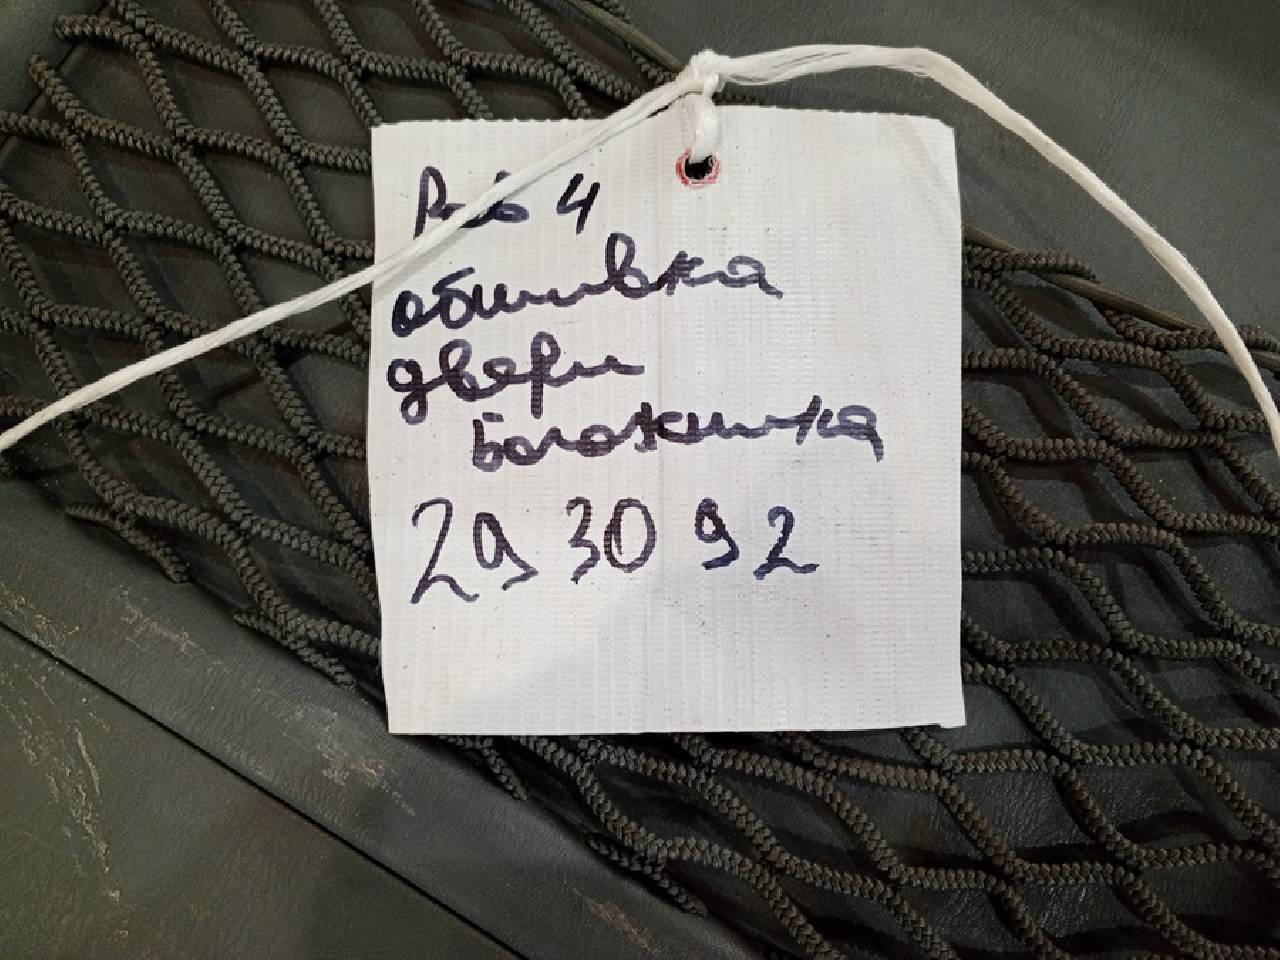 Рав 4
обшивка
двери
багажника
29 30 92